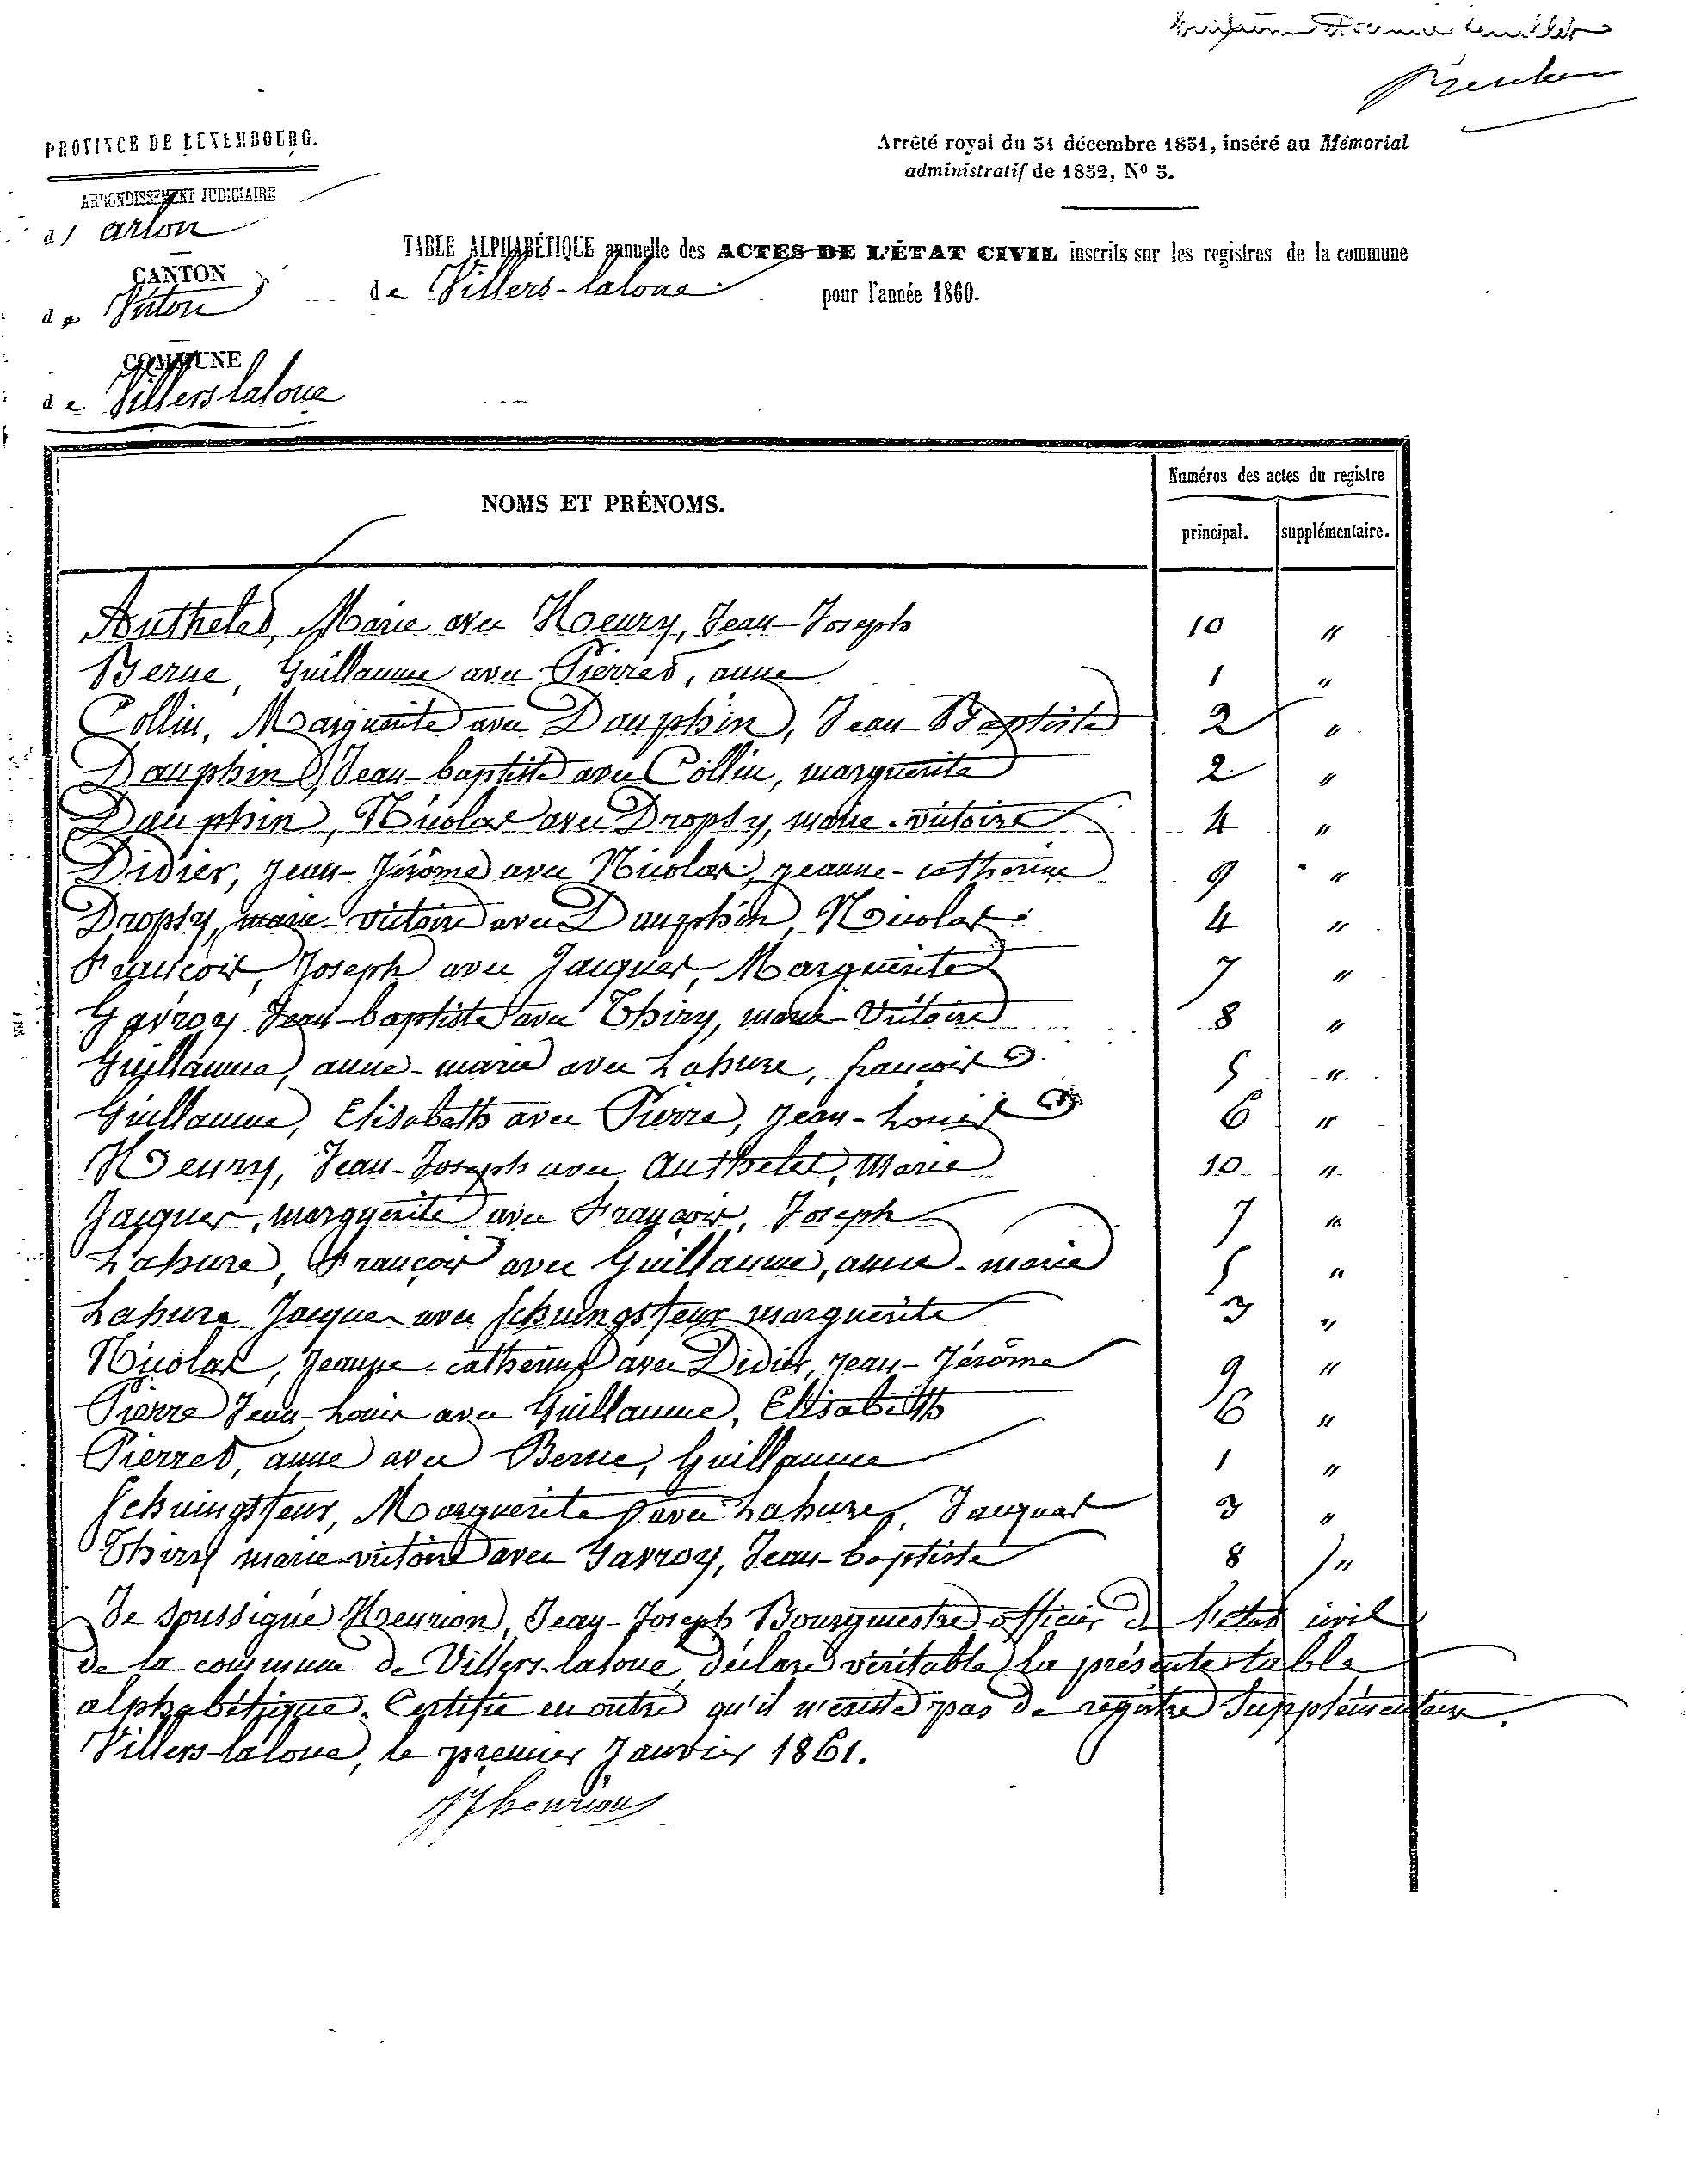 PROVINCE DE LUXEMBOURG.
ARRONDISSEMENT JUDICIAIRE
d' arlon
CANTON
de Virton
COMMUNE
de Villers-laloue
Arrêté royal du 31 décembre 1831, inséré au Mémorial
administratif de 1832, No 3.
TABLE ALPHABÉTIQUE annuelle des ACTES DE L'ÉTAT CIVIL inscrits sur les registres de la commune
de Villers-laloue. pour l'année 1860.
NOMS ET PRÉNOMS.
Numéros des actes du registre
principal. supplémentaire.
Authelet, Marie avec Heury, Jean-Joseph 10 "
Berne, Guillaume avec Pierret, anne 1 "
Collin, Marguerite avec Dauphin, Jean-Baptiste 2 "
Dauphin, Jean-baptiste avec Collin, marguerite 2 "
Dauphin, Nicolas avec Dropsy, marie-victoire 4 "
Didier, Jean-Jérôme avec Nicolas, jeanne-catherine 9 "
Dropsy, marie-victoire avec Dauphin, Nicolas 4 "
François, Joseph avec Jacques, Marguerite 7 "
Gavroy Jean-baptiste avec Thiry, marie-Victoire 8 "
Guillaume, anne-marie avec Lahure, françois 5 "
Guillaume, Elisabeth avec Pierre, Jean-Louis 6 "
Heury, Jean-Joseph avec authelet, Marie 10 "
Jacques, marguerite avec François, Joseph 7 "
Lahure, François avec Guillaume, anne-marie 5 "
Lahure Jacques avec Schuingsteur marguerite 3 "
Nicolas, Jeanne-catherine avec Didier, Jean-Jérôme 9 "
Pierre Jean-Louis avec Guillaume, Elisabeth 6 "
Pierret, anne avec Berne, Guillaume 1 "
Schuingsteur, Marguerite avec Lahure, Jacques 3 "
Thiry marie-victoire avec Gavroy, Jean-baptiste 8 "
Je soussigné Henrion, Jean-Joseph Bourgmestre officier de l'état civil
de la commune de Villers-laloue, déclare véritable la présente table
alphabétique. Certifie en outre qu'il n'existe pas de registre Supplémentaire.
Villers-laloue, le premier Janvier 1861.
JJhenrion